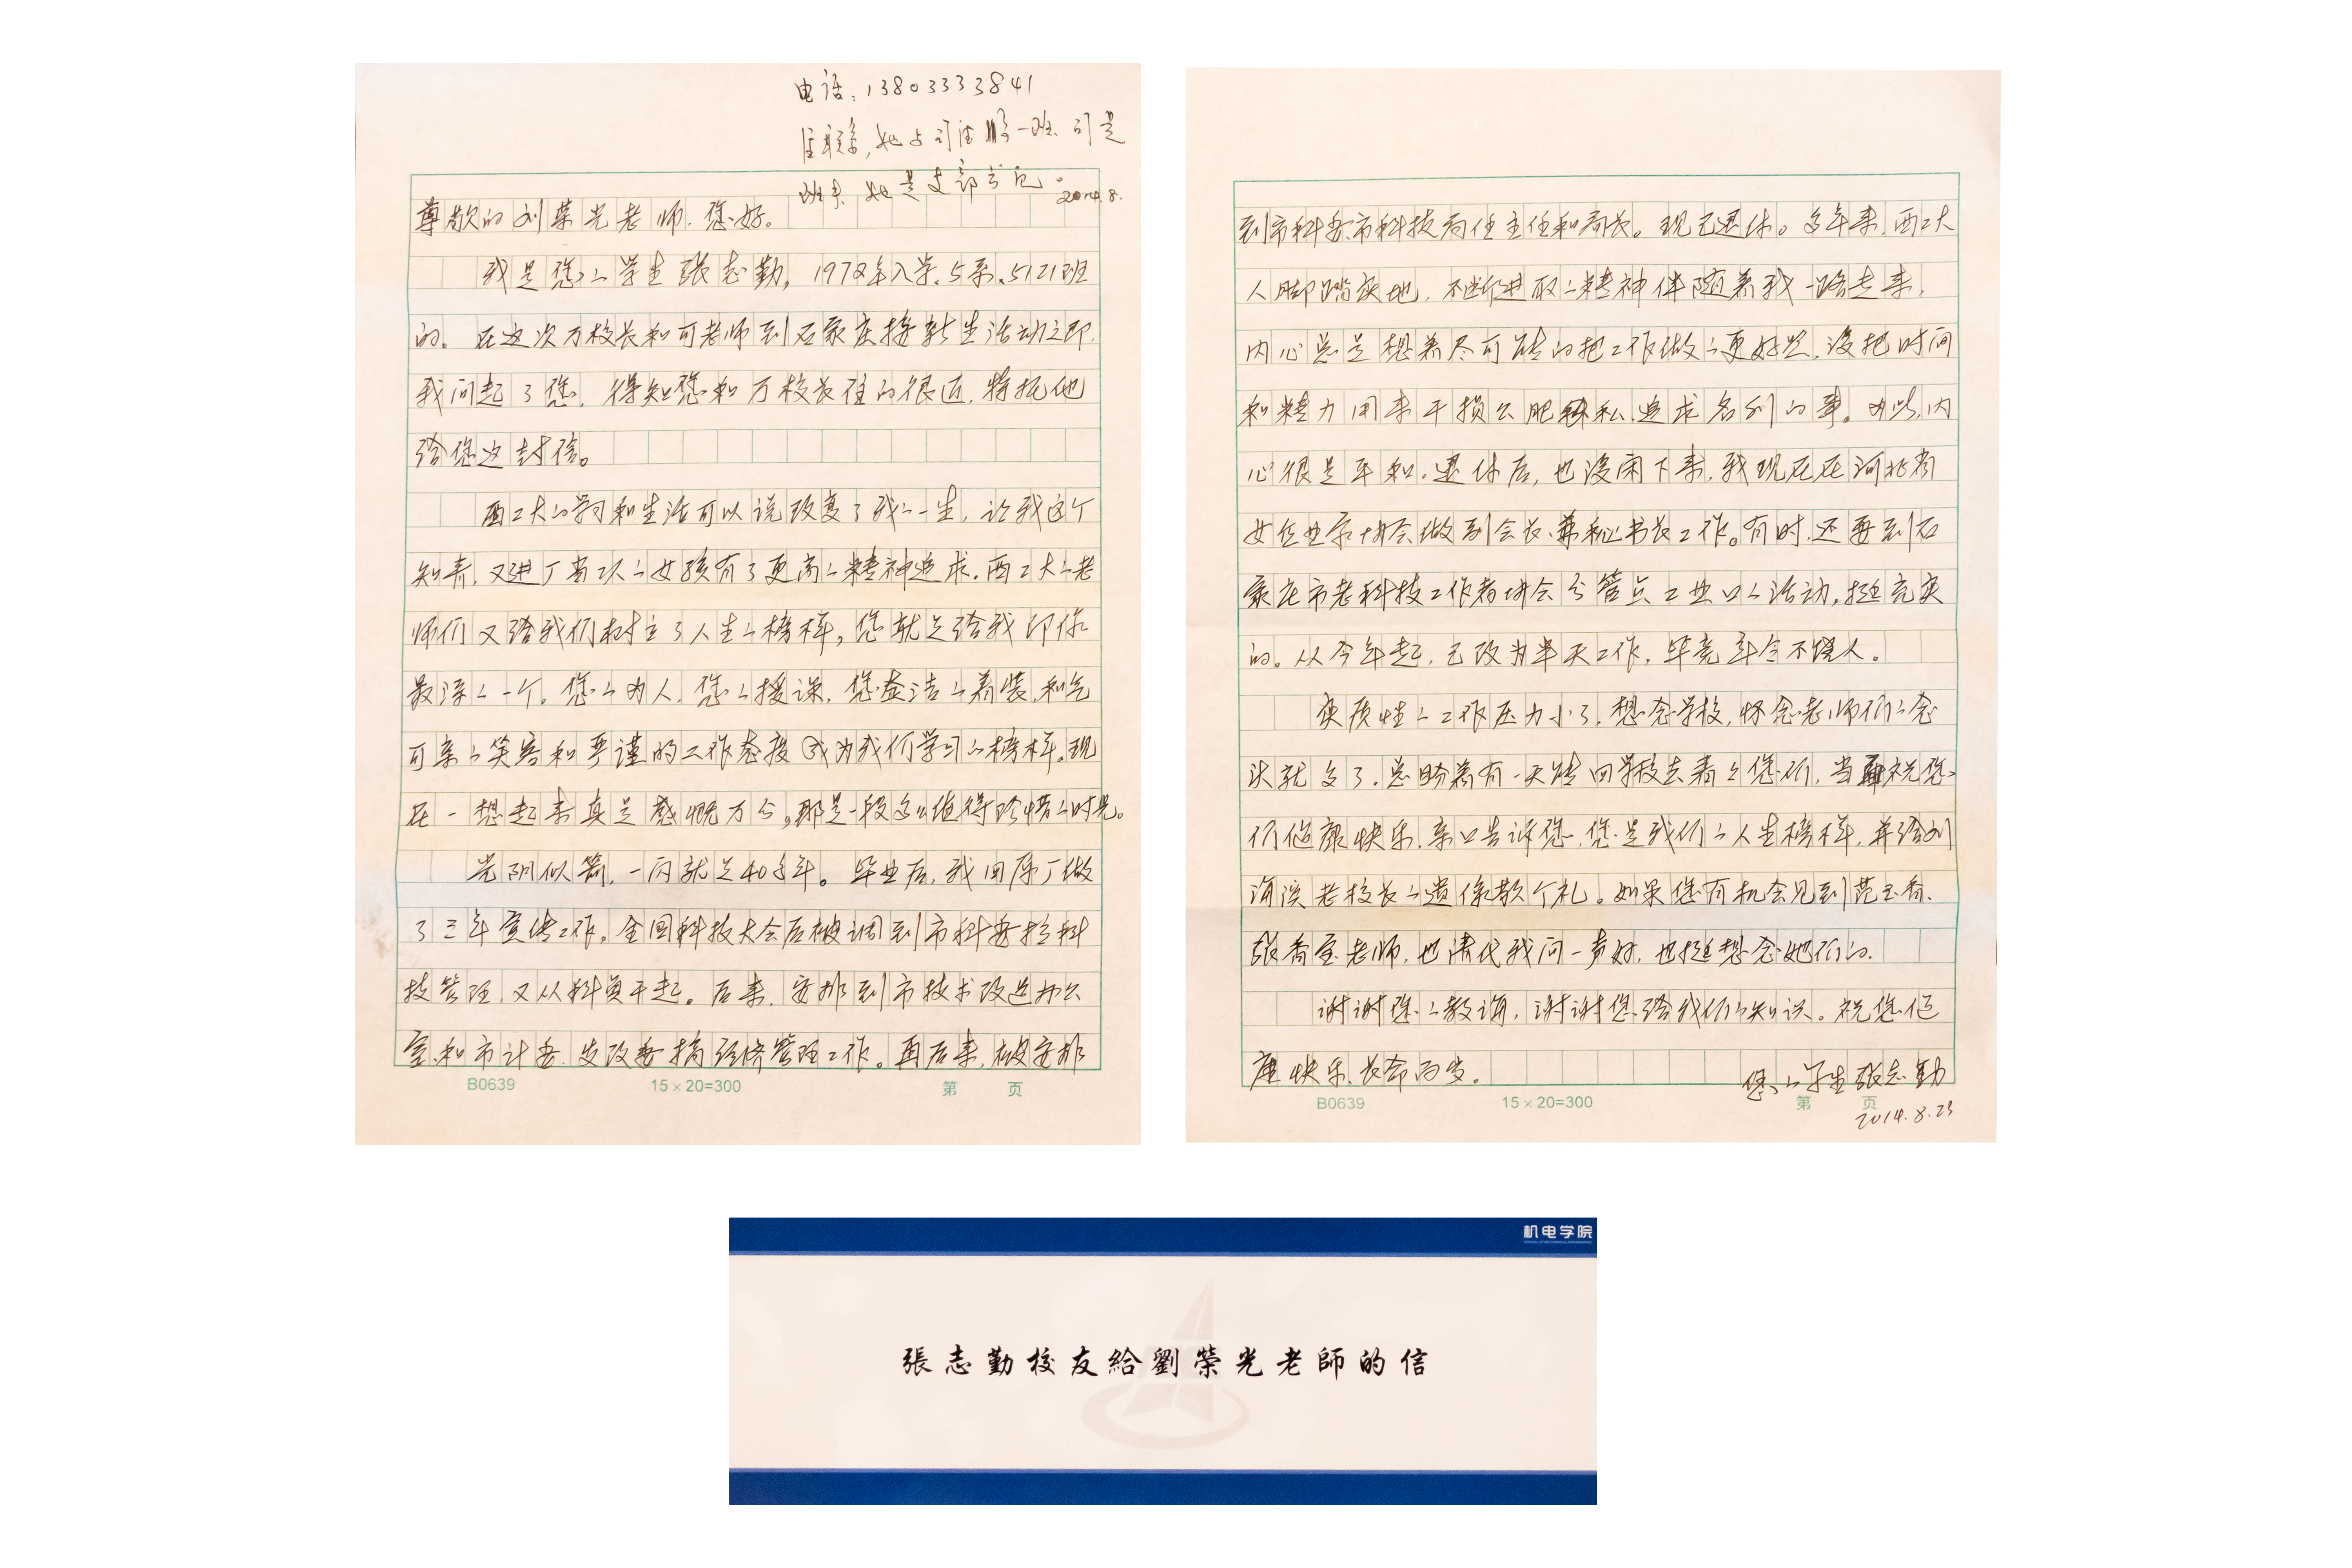 电话:13803333841
住联系,她与司洪鹏一班.司是
班长.她是支部书记。
2014.8.
尊敬的刘荣光老师.您好。
我是您的学生张志勤,1972年入学.5系.5121班
的。在这次万校长和可老师到石家庄接新生活动之即.
我问起了您.得知您和万校长住的很近.特托他
给您这封信。
西工大的学习和生活可以说改变了我的一生,让我这个
知青.又进厂当工人的女孩有了更高的精神追求.西工大的老
师们又给我们树立了人生的榜样,您就是给我印像
最深的一个。您的为人.您的授课.您整洁的着装.和气
可亲的笑容和严谨的工作态度成为我们学习的榜样。现
在一想起来真是感慨万分,那是一段多么值得珍惜的时光。
光阴似箭,一闪就是40多年。毕业后,我回原厂做
了三年宣传工作。全国科技大会后被调到市科委搞科
技管理.又从科员干起。后来.安排到市技术改造办公
室.和市计委.发改委搞经济管理工作。再后来,被安排
B0639
15×20=300
第 页
到市科委.市科技局任主任和局长。现已退休。多年来.西工大
人脚踏实地,不断进取的精神伴随着我一路走来,
内心总是想着尽可能的把工作做的更好些.没把时间
和精力用来干损公肥私.追求名利的事。为此,内
心很是平和.退休后,也没闲下来.我现在在河北省
女企业家协会做副会长.兼秘书长工作。有时.还要到石
家庄市老科技工作者协会分管点工业口的活动,挺充实
的。从今年起.已改为半天工作,毕竟年令不饶人。
实质性的工作压力小了.想念学校,怀念老师们的念
头就多了.总盼着有一天能回学校去看看您们,当面祝您
们健康快乐.亲口告诉您.您是我们的人生榜样.并给刘
海滨老校长的遗像敬个礼。如果您有机会见到范玉香.
张香宝老师,也请代我问一声好.也挺想念她们的.
谢谢您的教诲,谢谢您给我们的知识。祝您健
康快乐.长命百岁。
您的学生张志勤
2014.8.23
B0639
15×20=300
第 页
机电学院
張志勤校友給劉榮光老師的信